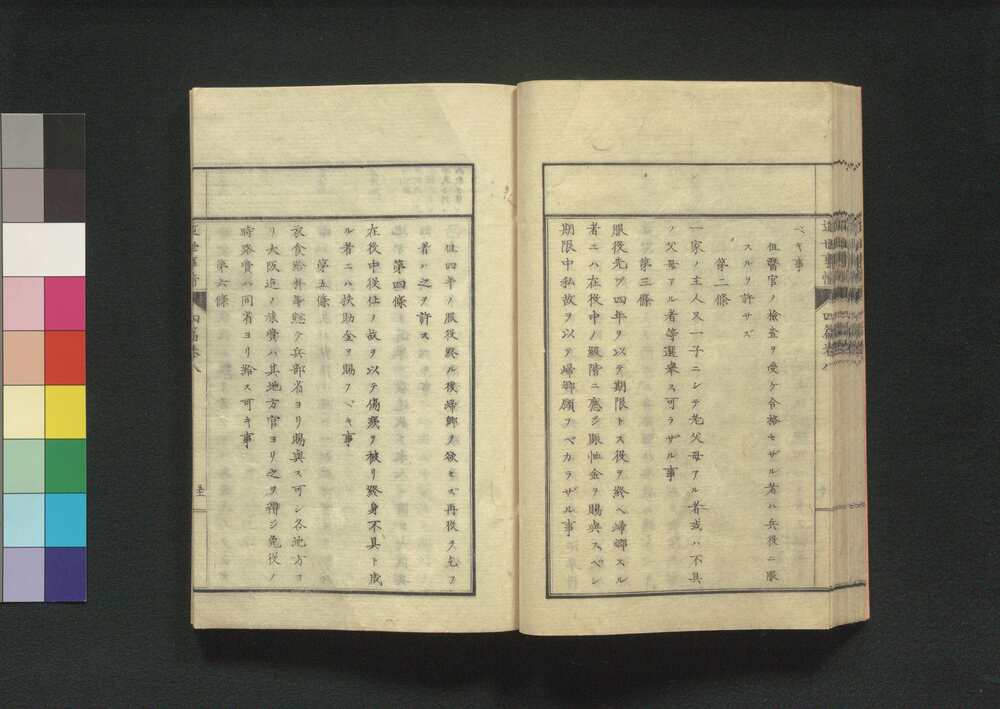 近世事情 四篇巻八
ベキ事
但醫官ノ檢査ヲ受ケ合格セザル者ハ兵役ニ服
スルヲ許サズ
第二條
一家ノ主人又一子ニシテ老父母アル者或ハ不具
ノ父母アル者等選擧ス可ラザル事
第三條
服役先ヅ四年ヲ以テ期限トス役ヲ終ヘ歸鄕スル
者ニハ在役中ノ職階ニ應ジ賑恤金ヲ賜與スベシ
期限中私故ヲ以テ歸鄕願フベカラザル事
但四年ノ服役終ル後歸鄕ヲ欲セズ再役ヲ乞フ
者ハ之ヲ許ス
第四條
在役中役仕ノ故ヲ以テ傷痍ヲ被リ終身不具ト成
ル者ニハ扶助金ヲ賜フベキ事
第五條
衣食給料等總テ兵部省ヨリ賜與ス可シ各地方ヨ
リ大阪迄ノ旅費ハ其地方官ヨリ之ヲ辨ジ免役ノ
時路費ハ同省ヨリ給ス可キ事
第六條
近世事情 四篇巻八